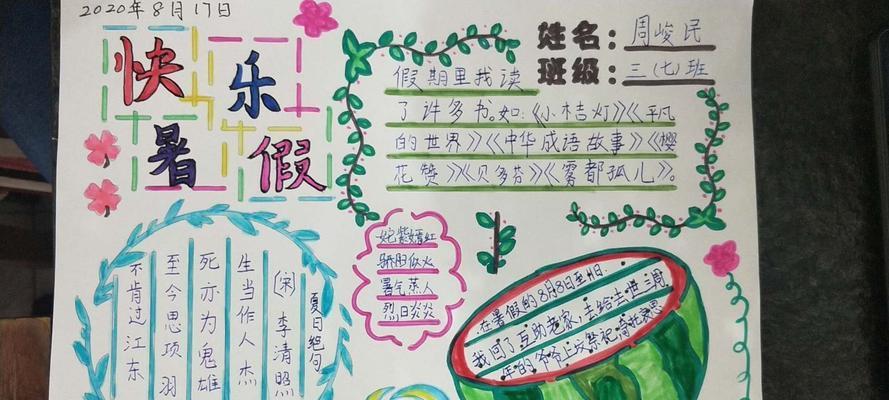 2020年8月17日
快乐
暑假
姓名:周峻民
班级:三(七)班
假期里我读
了许多书。如:《小桔灯》《平凡
的世界》《中华成语故事》《樱
花赞》《贝多芬》《雾都孤儿》。
夏日绝句
(宋)李清照
生当作人杰
死亦为鬼雄
至今思项羽
不肯过江东
姹紫嫣红
骄阳似火
暑气蒸人
烈日炎炎
在暑假的8月8日至11日.
我回了互助老家、去给去世三周
年的爷爷上坟祭祀寄托哀思